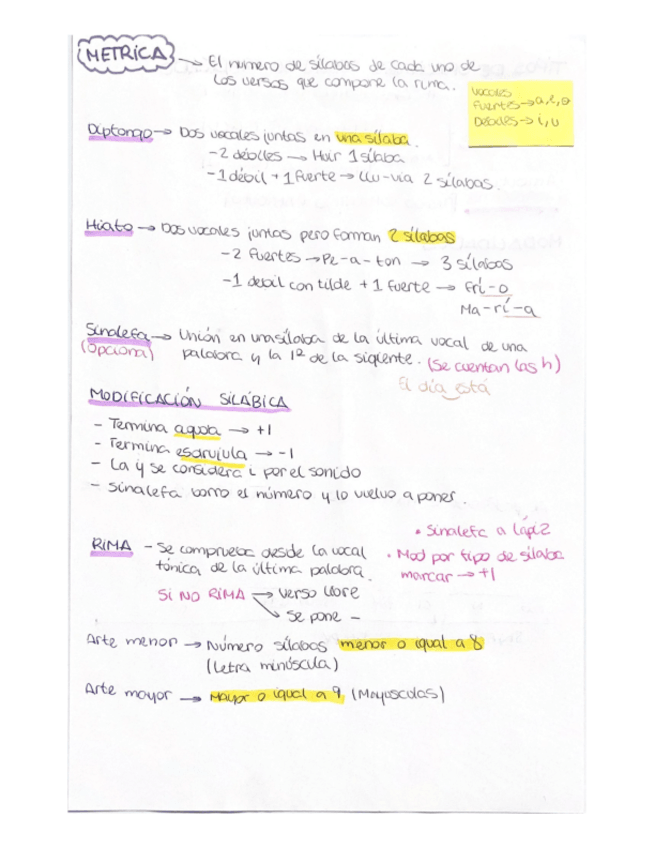 METRICA → El numero de sílabas de cada uno de
los versos que compone la rima.
Vocales
Fuertes → a, e, o
Débiles → i, u
Diptongo → Dos vocales juntas en una sílaba.
- 2 débiles → Huir 1 sílaba
- 1 débil + 1 fuerte → Llu-via 2 sílabas.
Hiato → Dos vocales juntas pero forman 2 sílabas
- 2 fuertes → Pe-a-ton → 3 sílabas
- 1 debil con tilde + 1 fuerte → Frí-o
Ma-rí-a
Sinalefa → Unión en una sílaba de la última vocal de una
(opciona) palabra y la 1ª de la siguente. (Se cuentan las h)
El día está
MODIFICACIÓN SILÁBICA
- Termina aguda → +1
- Termina esdrújula → -1
- La y se considera i por el sonido
- Sinalefa borro el número y lo vuelvo a poner.
• Sinalefa a lápiz
• Mod por tipo de sílaba
marcar → +1
RIMA - Se comprueba desde la vocal
tónica de la última palabra.
SI NO RIMA → verso libre
↘ Se pone -
Arte menor → Número sílabas menor o igual a 8
(Letra minúscula)
Arte mayor → Mayor o igual a 9 (Mayusculas)